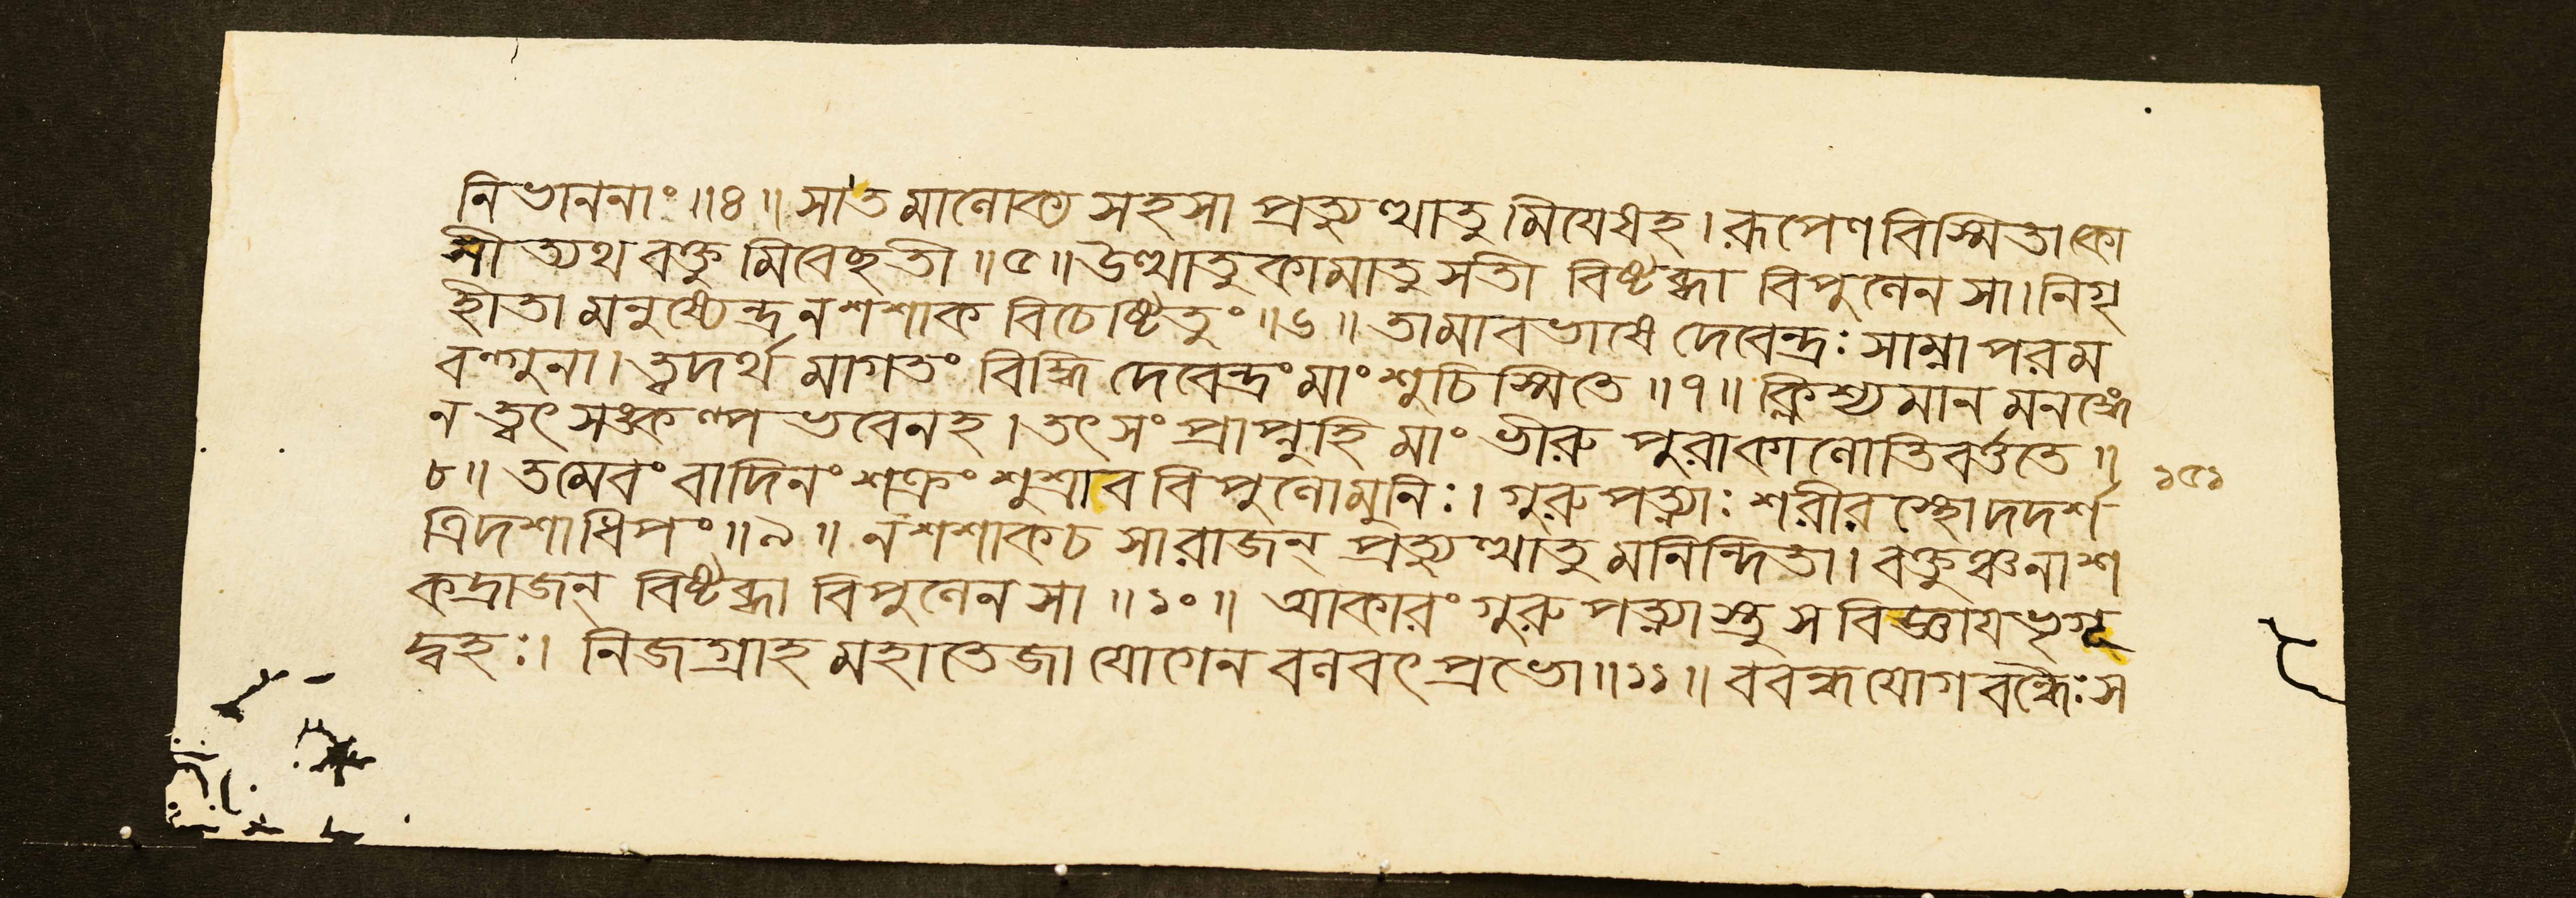 নিভাননাং ॥৪॥ সা তমালোক্য সহসা প্রত্যুত্থাতুমিযেষহ। রূপেণ বিস্মিতা কো
সীত্যথ বক্তুমিবেছতী ॥৫॥ উত্থাতুকামাতু সতী বিষ্টব্ধা বিপুলেন সা। নিগৃ
হীতা মনুষ্যেন্দ্র ন শশাক বিচেষ্টিতুং ॥৬॥ তামাবভাষে দেবেন্দ্রঃ সাম্না পরম
বল্গুনা। ত্বদর্থমাগতং বিদ্ধি দেবেন্দ্রং মাং শুচিস্মিতে ॥৭॥ ক্লিশ্যমানমনঙ্গে
ন ত্বৎসঙ্কল্পভবেনহ। তৎ সংপ্রাপ্নুহি মাং ভীরু পুরাকালোতিবর্ত্ততে ॥
৮॥ তমেবং বাদিনং শক্রং শুশ্রাব বিপুলোমুনিঃ। গুরুপত্ন্যাঃ শরীরস্থো দদর্শ
ত্রিদশাধিপং ॥৯॥ ন শশাকচ সারাজন্ প্রত্যুত্থাতুমনিন্দিতা। বক্তুঞ্চনাশ
কদ্রাজন্ বিষ্টব্ধা বিপুলেন সা ॥১০॥ আকারং গুরুপত্ন্যাস্তু স বিজ্ঞায ভৃগূ
দ্বহঃ। নিজগ্রাহ মহাতেজা যোগেন বলবৎ প্রভো ॥১১॥ ববন্ধ যোগবন্ধৈঃ স
১৫১